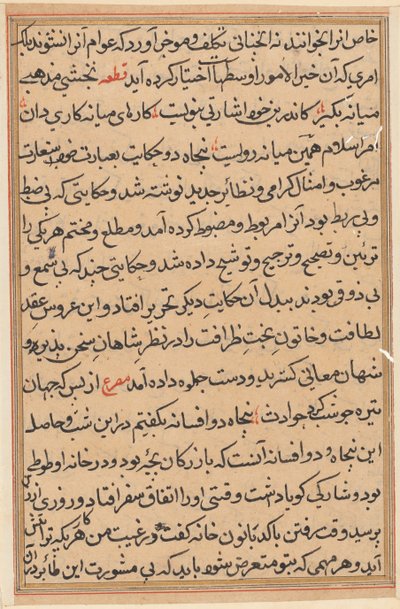 خاص انرا نخوانند نه انچنانی تکلف و موجز آورد که عوام آنرا نشنوند بلکه
امری که آن خیر الامور اوسطها اختیار کرده آید قطعه نخشبی مذهبی
میانه بگیر کاندرین خود اشارتی نبویست کارهای میانه کاری دان
امر اسلام همین میانه رویست پنجاه و دو حکایت بعبارت و استعارت
مرغوب و امثال گرامی و نظائر جدید نوشته شد و حکایتی که بی ضبط
و بی ربط بود آنرا مربوط و مضبوط کرده آمد و مطلع و مختم هر یکی را
تزئین و تصحیح و ترجیح و توشیح داده شد و حکایتی چند که بی سمع و
بی ذوق بودند ببدل آن حکایت دیگر تحریر افتاد و این عروس عقد
لطافت و خاتون تخت ظرافت را در نظر شاهان سخن پذیر و
شهان معانی کستر ید و دست جلوه داده آمد مصرع از بس که جهان
تیره جو شب کرد حوادث پنجاه دو افسانه بگفتیم در این شب و حاصل
این پنجاه و دو افسانه آنست که بازرگان بچه بود و در خانه او طوطی
بود و شارکی کویا داشت وقتی او را اتفاق سفر افتاد و روزی
برسید وقت رفتن با کدبانون خانه گفت و رغبت من هر گاه که
آید و هر مهمی که بتو متعرض شود باید که بی مشورت این طائر